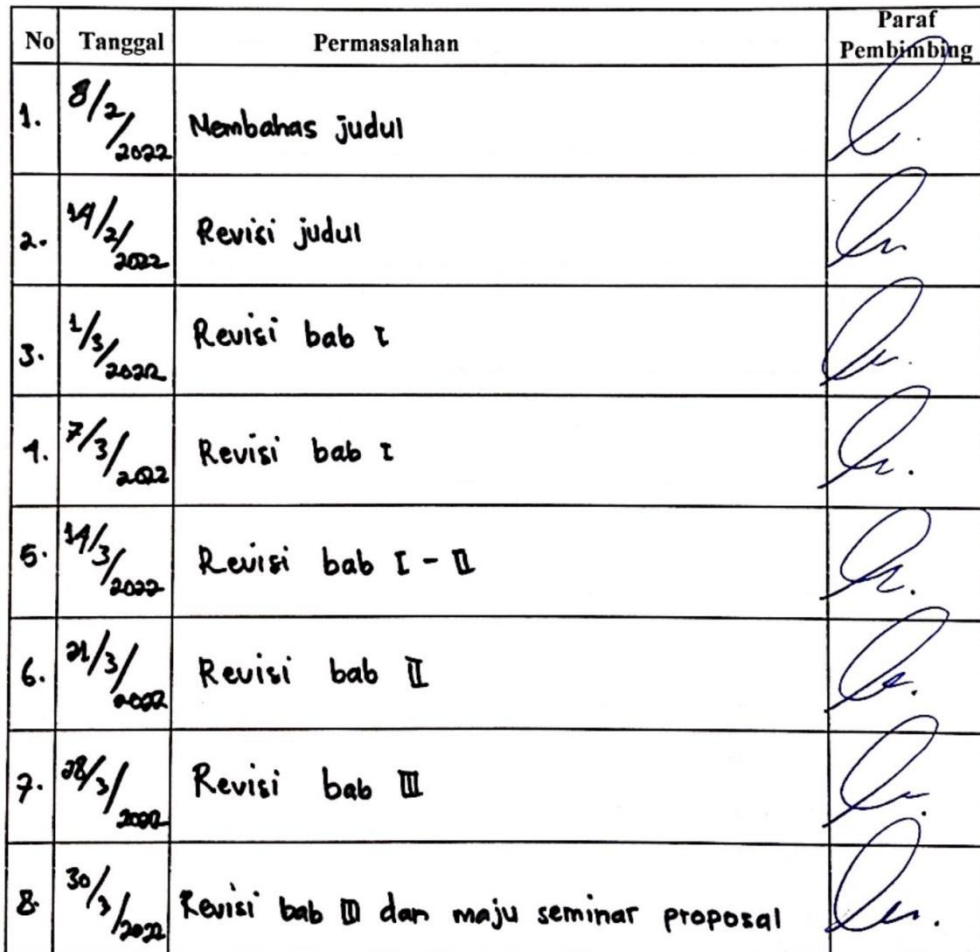 No Tanggal Permasalahan Paraf Pembimbing
1. 8/2/2022 Membahas judul
2. 14/2/2022 Revisi judul
3. 1/3/2022 Revisi bab I
4. 7/3/2022 Revisi bab I
5. 14/3/2022 Revisi bab I - II
6. 21/3/2022 Revisi bab II
7. 28/3/2022 Revisi bab III
8. 30/3/2022 Revisi bab III dan maju seminar proposal